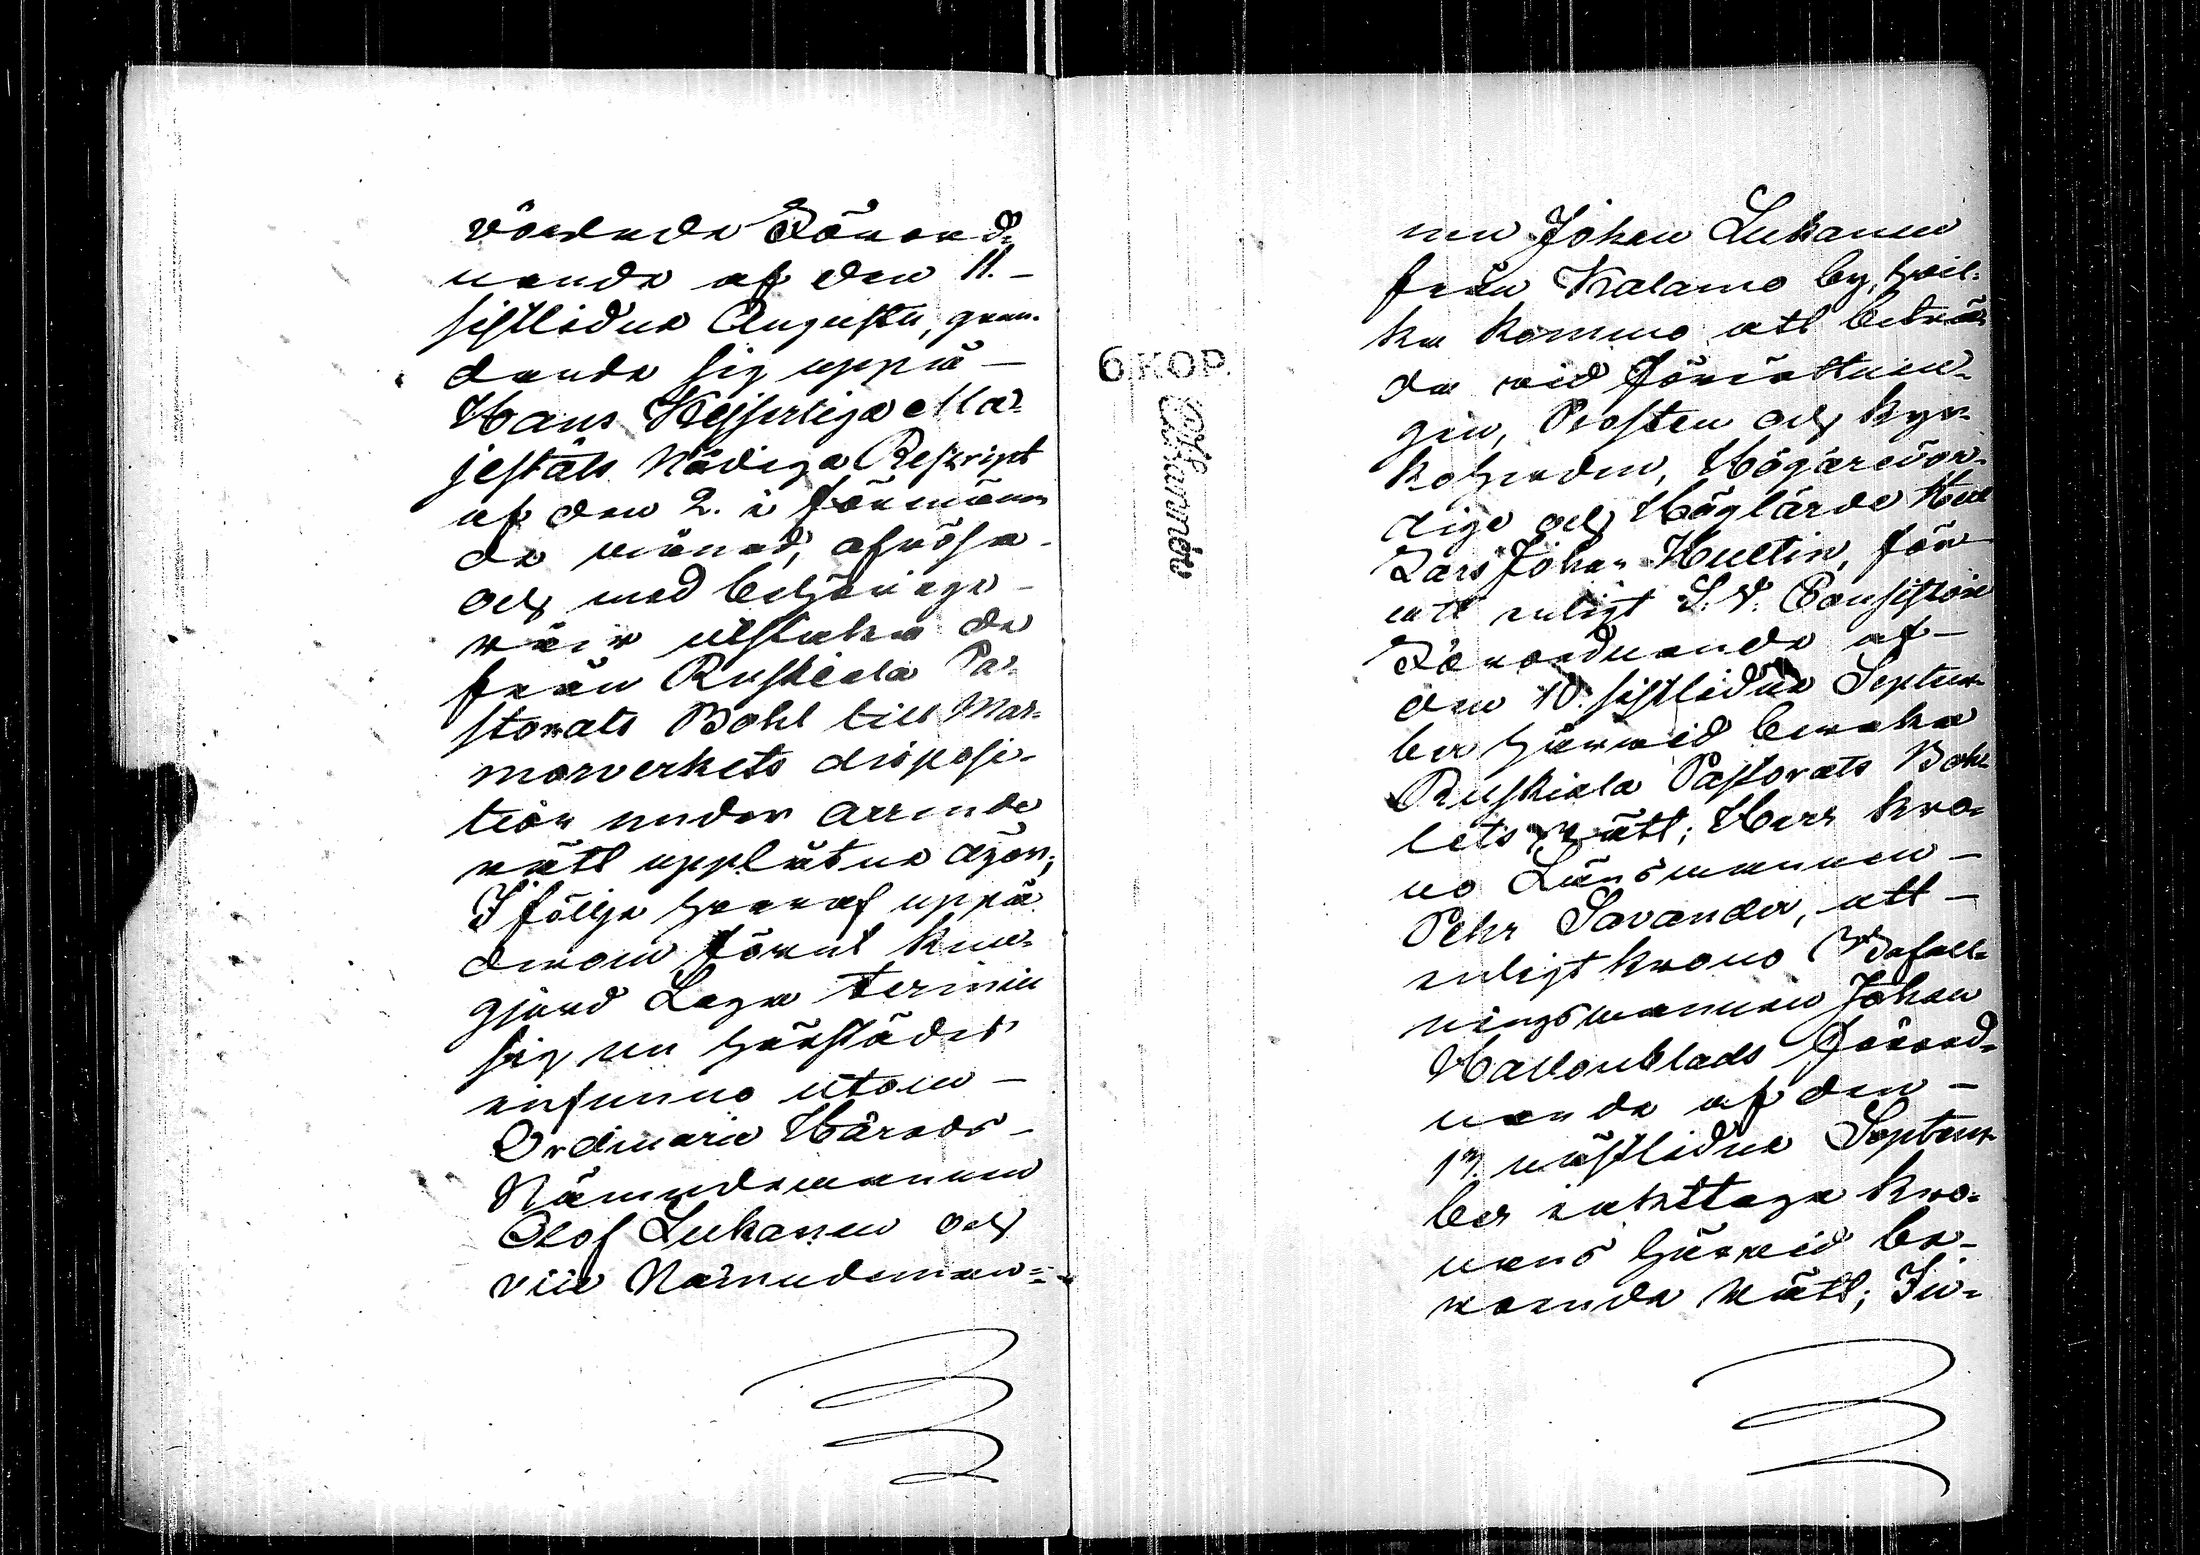 vördade Förord-
nande af den 11.
sistlidne Augusti, grun-
dande sig uppå
Hans Kejserliga Ma-
jestäts Nådiga Reskript
af den 2. i
de månad,
och med behöriga
rår utstaka de
från Ruskeala Pa-
storats Bohl till Mar-
morverkets disposi-
tion under arrende
rätt upplåtne ägor;
I följe hvaraf uppå
derom förut kun-
gjord Laga termin
sig nu härstädes
infunno utom
Ordinarie Härads-
Nämndemannen
Olof Lukanen och
vice Nämndeman-
nen Johan Lukanen
från Kalamo by, hvil-
ka komma att biträ-
da vid förrättnin-
gen, Prosten och kyr-
koherden, Högärevör-
dige och Höglärde Herr
Lars Johan Hultin, för
att enligt S. V. Consistorii
Förordnande af
den 10. sistlidne Septem-
ber härvid bevaka
Ruskiala Pastorats Boh-
lets rätt; Herr kro-
no Länsmannen
Pehr Savander, att
enligt krono Befall-
ningsmannen Johan
Hallonblads Förord-
nande af den
17. nästlidne Septem-
ber iakttaga kro-
nans härvid be-
roende rätt; In-
6 KOP.